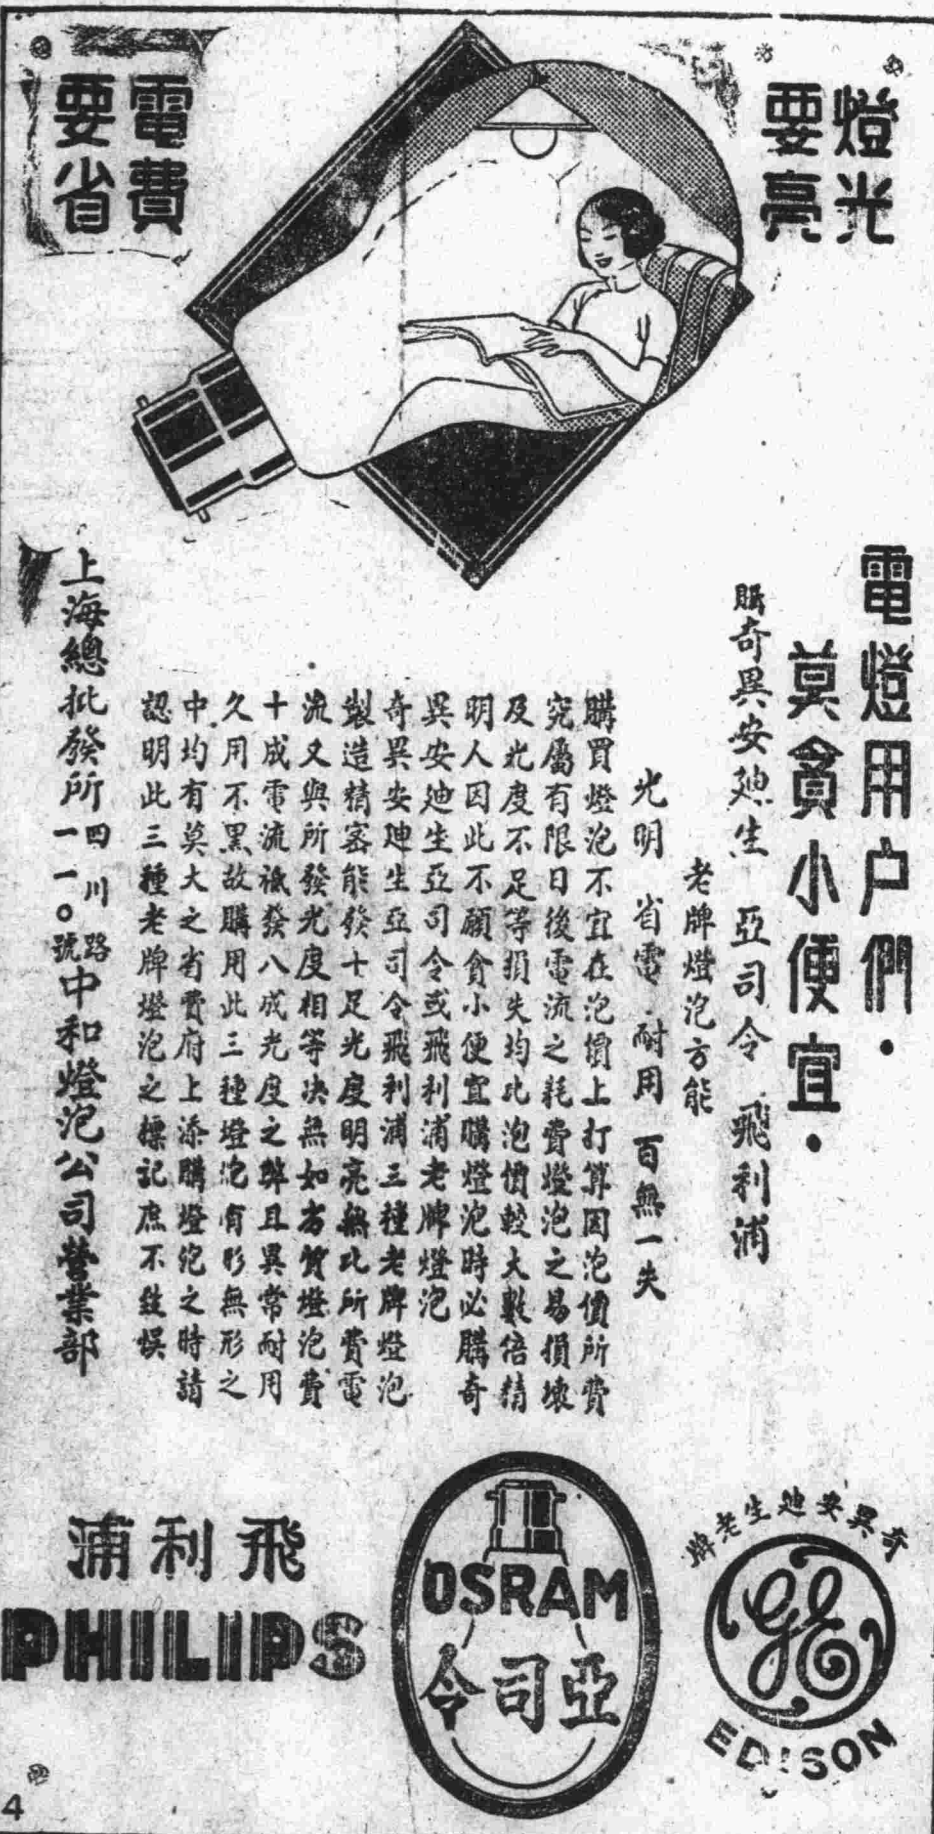 燈光
要亮
電費
要省
電燈用户們．
莫貪小便宜．
購奇異安廸生 亞司令 飛利浦
老牌燈泡方能
光明 省電 耐用 百無一失
購買燈泡不宜在泡價上打算因泡價所費
究屬有限日後電流之耗費燈泡之易損壞
及光度不足等損失均比泡價較大數倍精
明人因此不願貪小便宜購燈泡時必購奇
異安廸生亞司令或飛利浦老牌燈泡
奇異安廸生亞司令飛利浦三種老牌燈泡
製造精密能發十足光度明亮無比所費電
流又與所發光度相等决無如劣質燈泡費
十成電流祇發八成光度之弊且異常耐用
久用不黑故購用此三種燈泡有形無形之
中均有莫大之省費府上添購燈泡之時請
認明此三種老牌燈泡之標記庶不致悞
上海總批發所四川路一一〇號中和燈泡公司營業部
奇異安廸生老牌
GE
EDISON
OSRAM
亞司令
飛利浦
PHILIPS
4